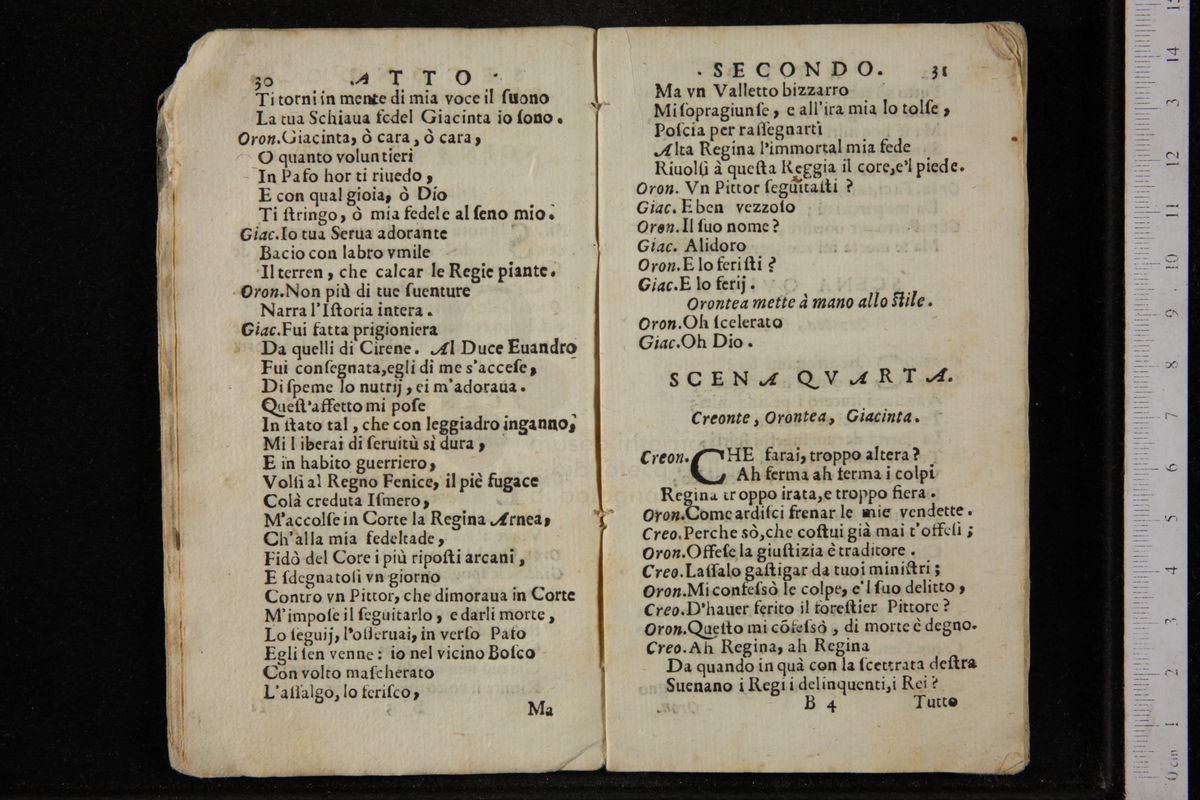 30 .ATTO.
Ti torni in mente di mia voce il ſuono
La tua Schiaua fedel Giacinta io ſono.
Oron.Giacinta, ò cara, ò cara,
O quanto voluntieri
In Pafo hor ti riuedo,
E con qual gioia, ò Dio
Ti ſtringo, ò mia fedele al ſeno mio.
Giac.Io tua Serua adorante
Bacio con labro vmile
Il terren, che calcar le Regie piante.
Oron.Non più di tue ſuenture
Narra l'Iſtoria intera.
Giac.Fui fatta prigioniera
Da quelli di Cirene. Al Duce Euandro
Fui conſegnata,egli di me s'acceſe,
Di ſpeme lo nutrij, ei m'adoraua.
Queſt'affetto mi poſe
In ſtato tal, che con leggiadro inganno,
Mi liberai di ſeruitù sì dura,
E in habito guerriero,
Volſi al Regno Fenice, il piè fugace
Colà creduta Iſmero,
M'accolſe in Corte la Regina Arnea,
Ch'alla mia fedeltade,
Fidò del Core i più ripoſti arcani,
E ſdegnatoſi vn giorno
Contro vn Pittor, che dimoraua in Corte
M'impoſe il ſeguitarlo, e darli morte,
Lo ſeguij, l'oſſeruai, in verſo Pafo
Egli ſen venne: io nel vicino Boſco
Con volto maſcherato
L'aſſalgo, lo feriſco,
Ma
.SECONDO. 31
Ma vn Valletto bizzarro
Mi ſopragiunſe, e all'ira mia lo tolſe,
Poſcia per raſſegnarti
Alta Regina l'immortal mia fede
Riuolſi à queſta Reggia il core,e'l piede.
Oron. Vn Pittor ſeguitaſti?
Giac. E ben vezzoſo
Oron.Il ſuo nome?
Giac. Alidoro
Oron.E lo feriſti?
Giac.E lo ferij.
Orontea mette à mano allo ſtile.
Oron.Oh ſcelerato
Giac.Oh Dio.
SCENA QVARTA.
Creonte, Orontea, Giacinta.
Creon.CHE farai, troppo altera?
Ah ferma ah ferma i colpi
Regina troppo irata,e troppo fiera.
Oron.Come ardiſci frenar le mie vendette.
Creo.Perche sò,che coſtui già mai t'offeſi;
Oron.Offeſe la giuſtizia è traditore.
Creo.Laſſalo gaſtigar da tuoi miniſtri;
Oron.Mi confeſsò le colpe, e'l ſuo delitto,
Creo.D'hauer ferito il foreſtier Pittore?
Oron.Queſto mi cõfeſsò, di morte è degno.
Creo.Ah Regina, ah Regina
Da quando in quà con la ſcettrata deſtra
Suenano i Regi i delinquenti,i Rei?
B 4 Tutto
0 cm 1 2 3 4 5 6 7 8 9 10 11 12 3 14 15